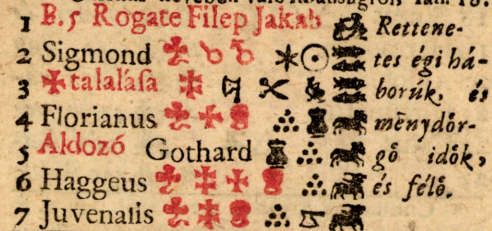 1 B. 5 Rogate Filep Jakab Rettene-
2 Sigmond tes égi há-
3 ✠ talalása borúk, és
4 Florianus mẽnydőr-
5 Aldozó Gothard gő idők,
6 Haggeus és félő.
7 Juvenalis